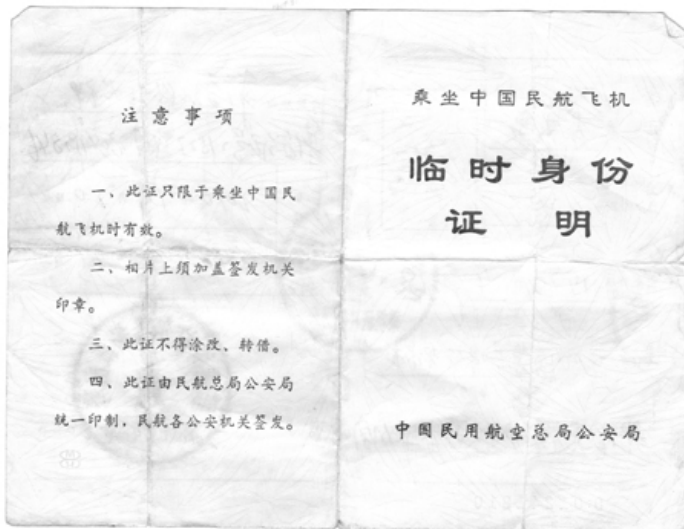 注意事项
一、此证只限于乘坐中国民
航飞机时有效。
二、相片上须加盖签发机关
印章。
三、此证不得涂改、转借。
四、此证由民航总局公安局
统一印制，民航各公安机关签发。
乘坐中国民航飞机
临时身份
证明
中国民用航空总局公安局